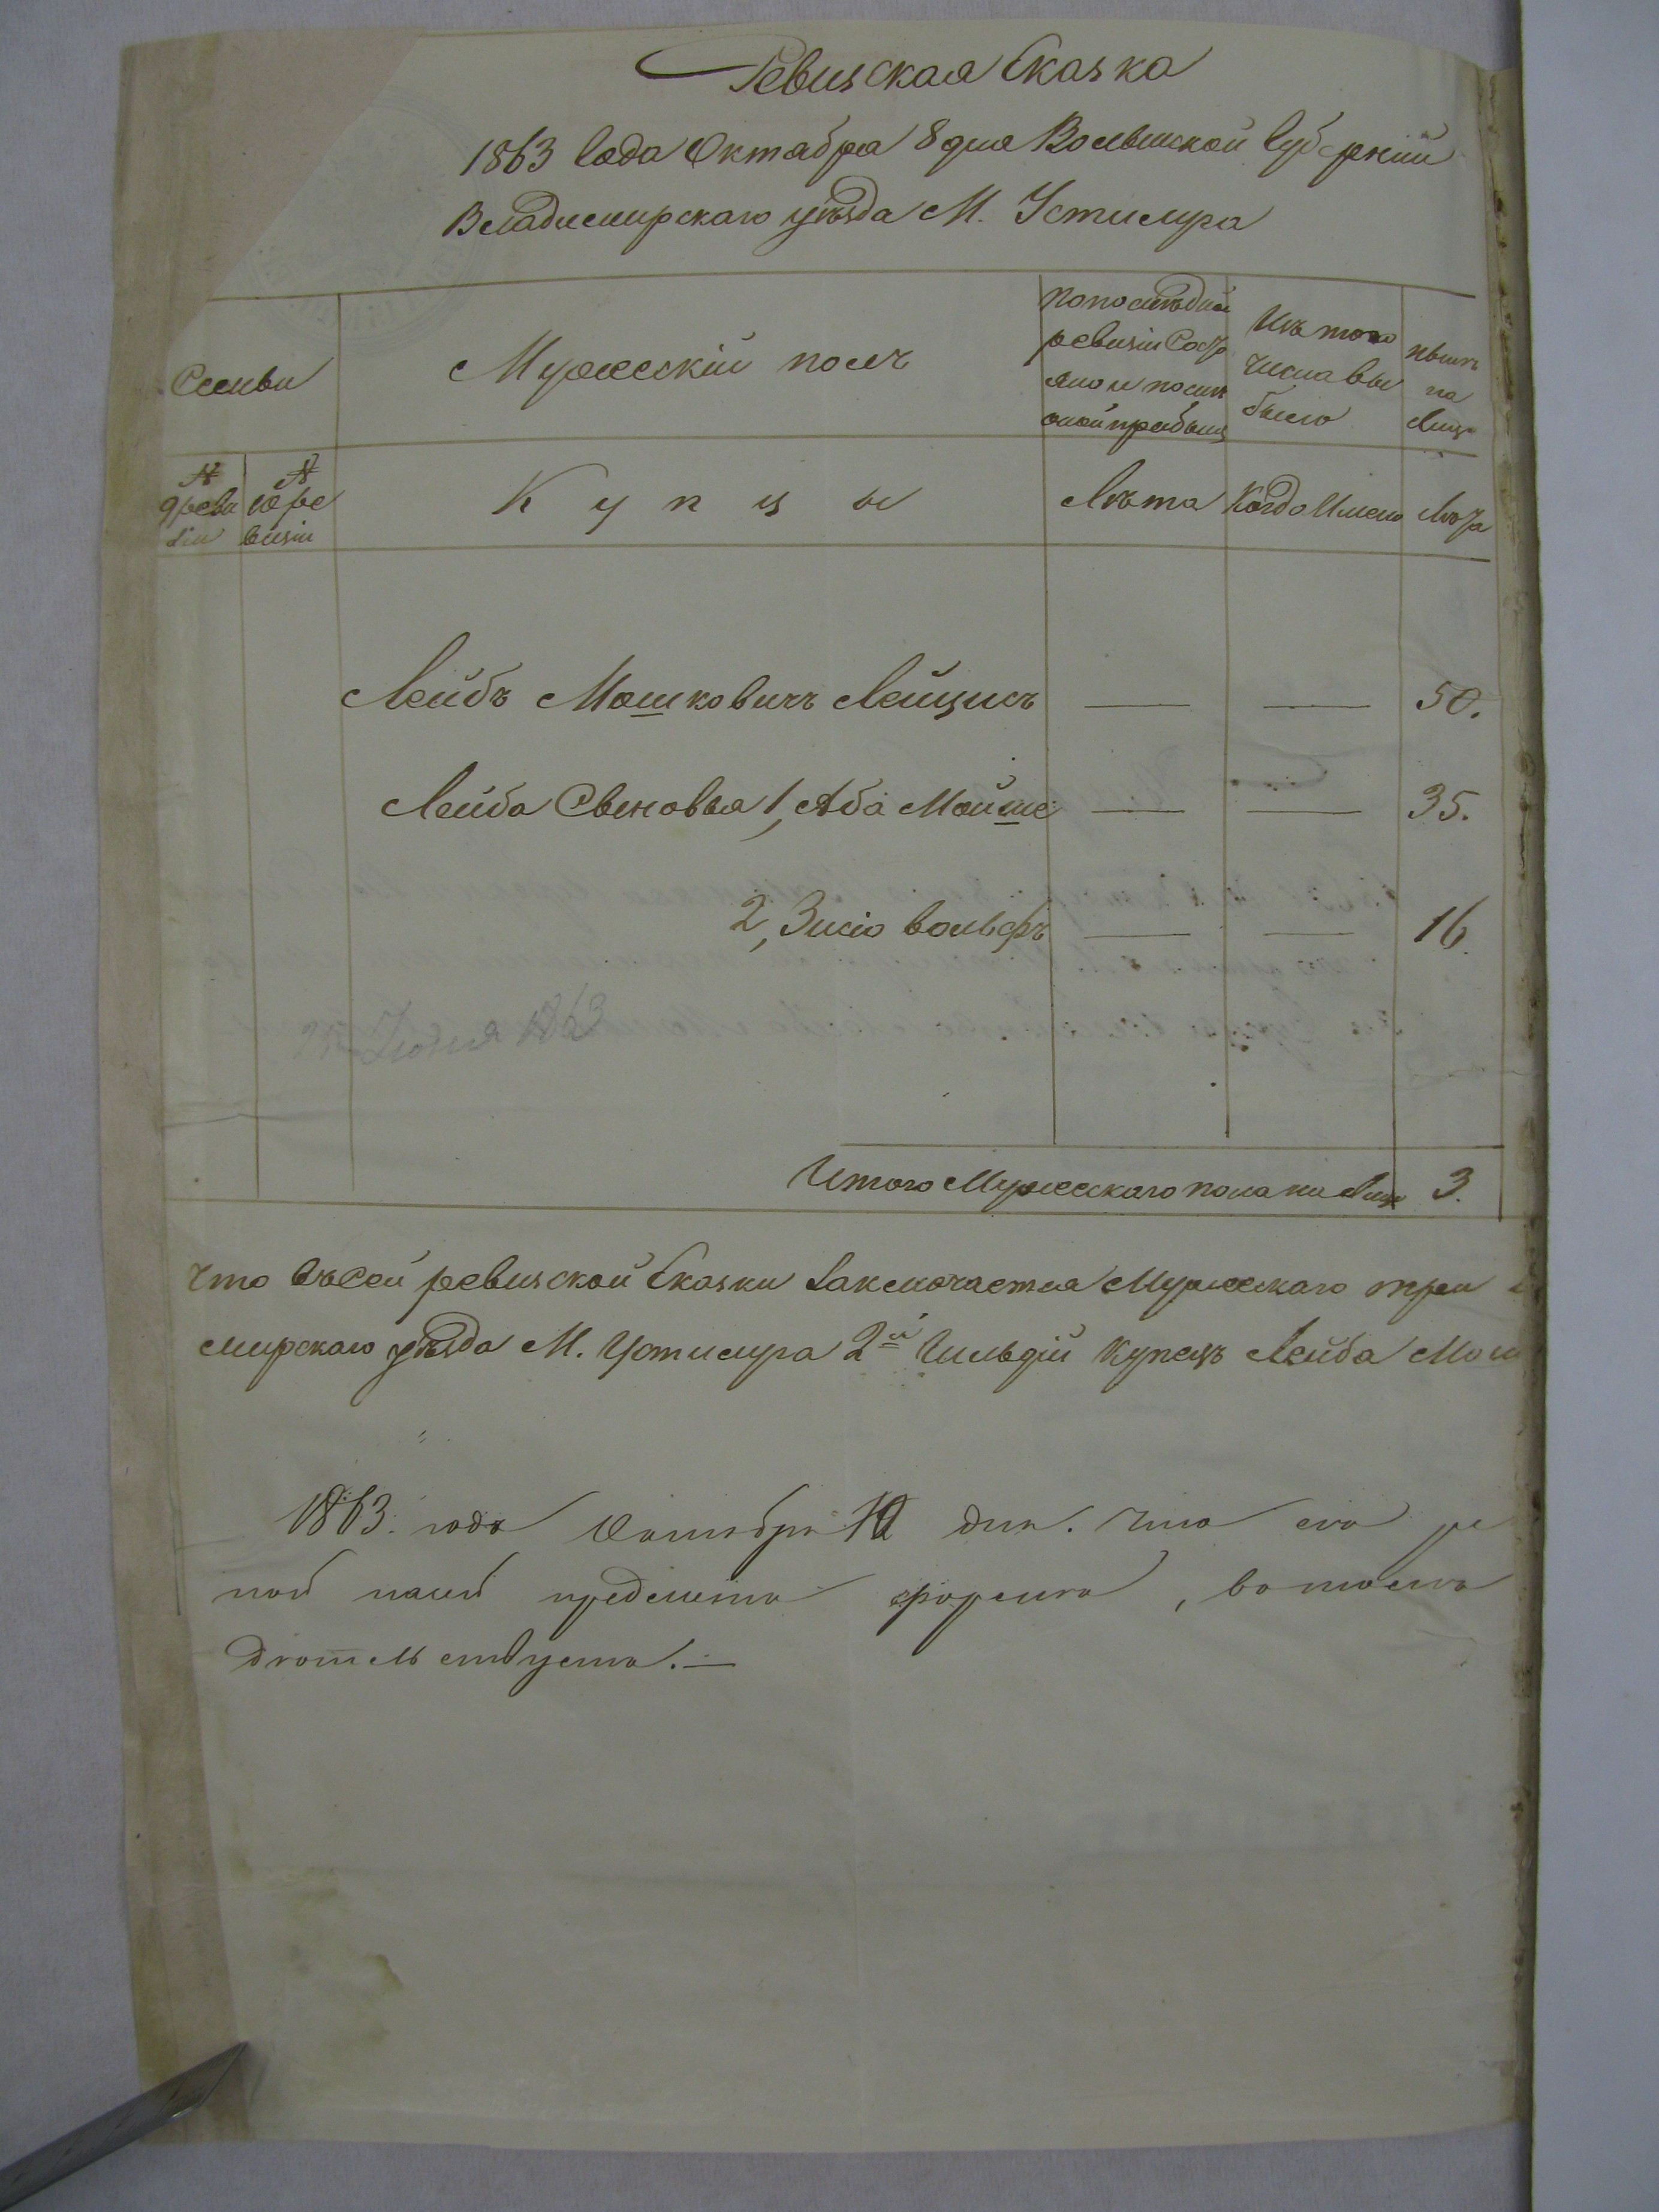 Ревизская Сказка
1863 Года Октабра 8 дня Волынской Губернии
Владимирскаго уѣзда М. Устилуга
Семьи
Мужескій полъ
По послѣдней
ревизіи Состо
яло и послѣ
оной прибыло
Изъ того
числа вы
было
нынѣ
на
Лицо
№
№
К у п ц ы
Лѣта
Когда Имено
Лѣта
Лейбъ Мошковичъ Лейцисъ — — 50.
Лейба Сыновья 1, Аба Мойше — — 35.
2, Зисіо Вольфъ — — 16.
Июня 1863
Итого Мужескаго пола на Лицо 3.
Что въ сей ревизской Сказки Заключается Мужескаго три
мирскаго уѣзда М. Устилуга 2й Гильдій Купецъ Лейба Мош
1863. года Октября 10 дня. Что
предмета форма, в томъ